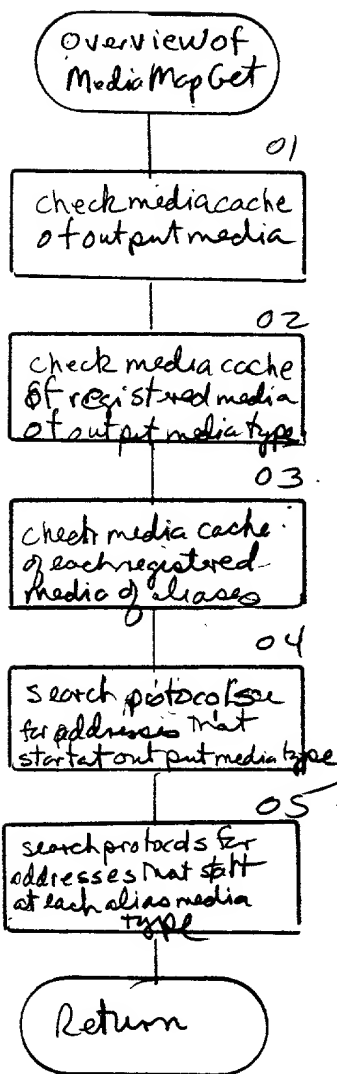 Overview of
MediaMapGet
01
check media cache
of output media
02
check media cache
of registered media
of output media type
03
check media cache
of each registered
media of aliases
04
search protocols
for addresses that
start at output media type
05
search protocols for
addresses that start
at each alias media
type
Return